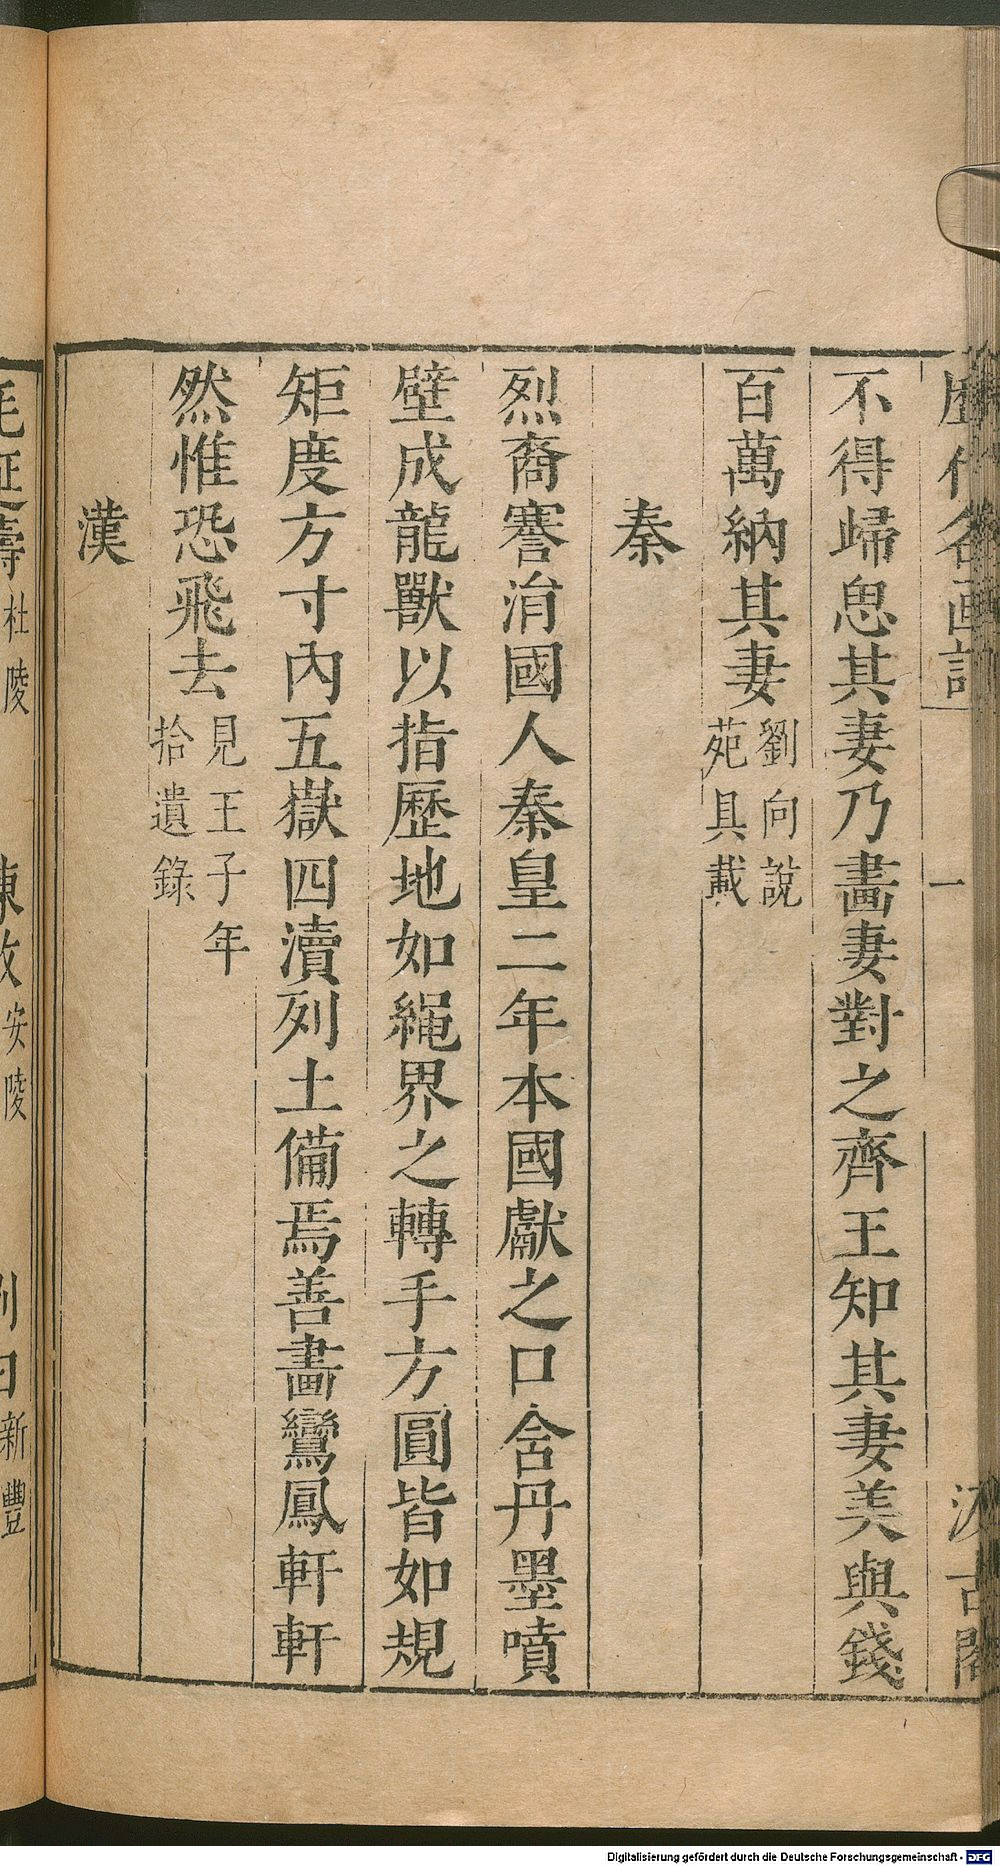 歷代名畫記
一
汲古閣
不得歸思其妻乃畫妻對之齊王知其妻美與錢
百萬納其妻
劉向說
苑具載
秦
烈裔謇涓國人秦皇二年本國獻之口含丹墨噴
壁成龍獸以指歷地如繩界之轉手方圓皆如規
矩度方寸內五嶽四瀆列土備焉善畫鸞鳳軒軒
然惟恐飛去
見王子年
拾遺錄
漢
毛延壽
杜陵
陳敞
安陵
劉白
新豐
Digitalisierung gefördert durch die Deutsche Forschungsgemeinschaft - DFG